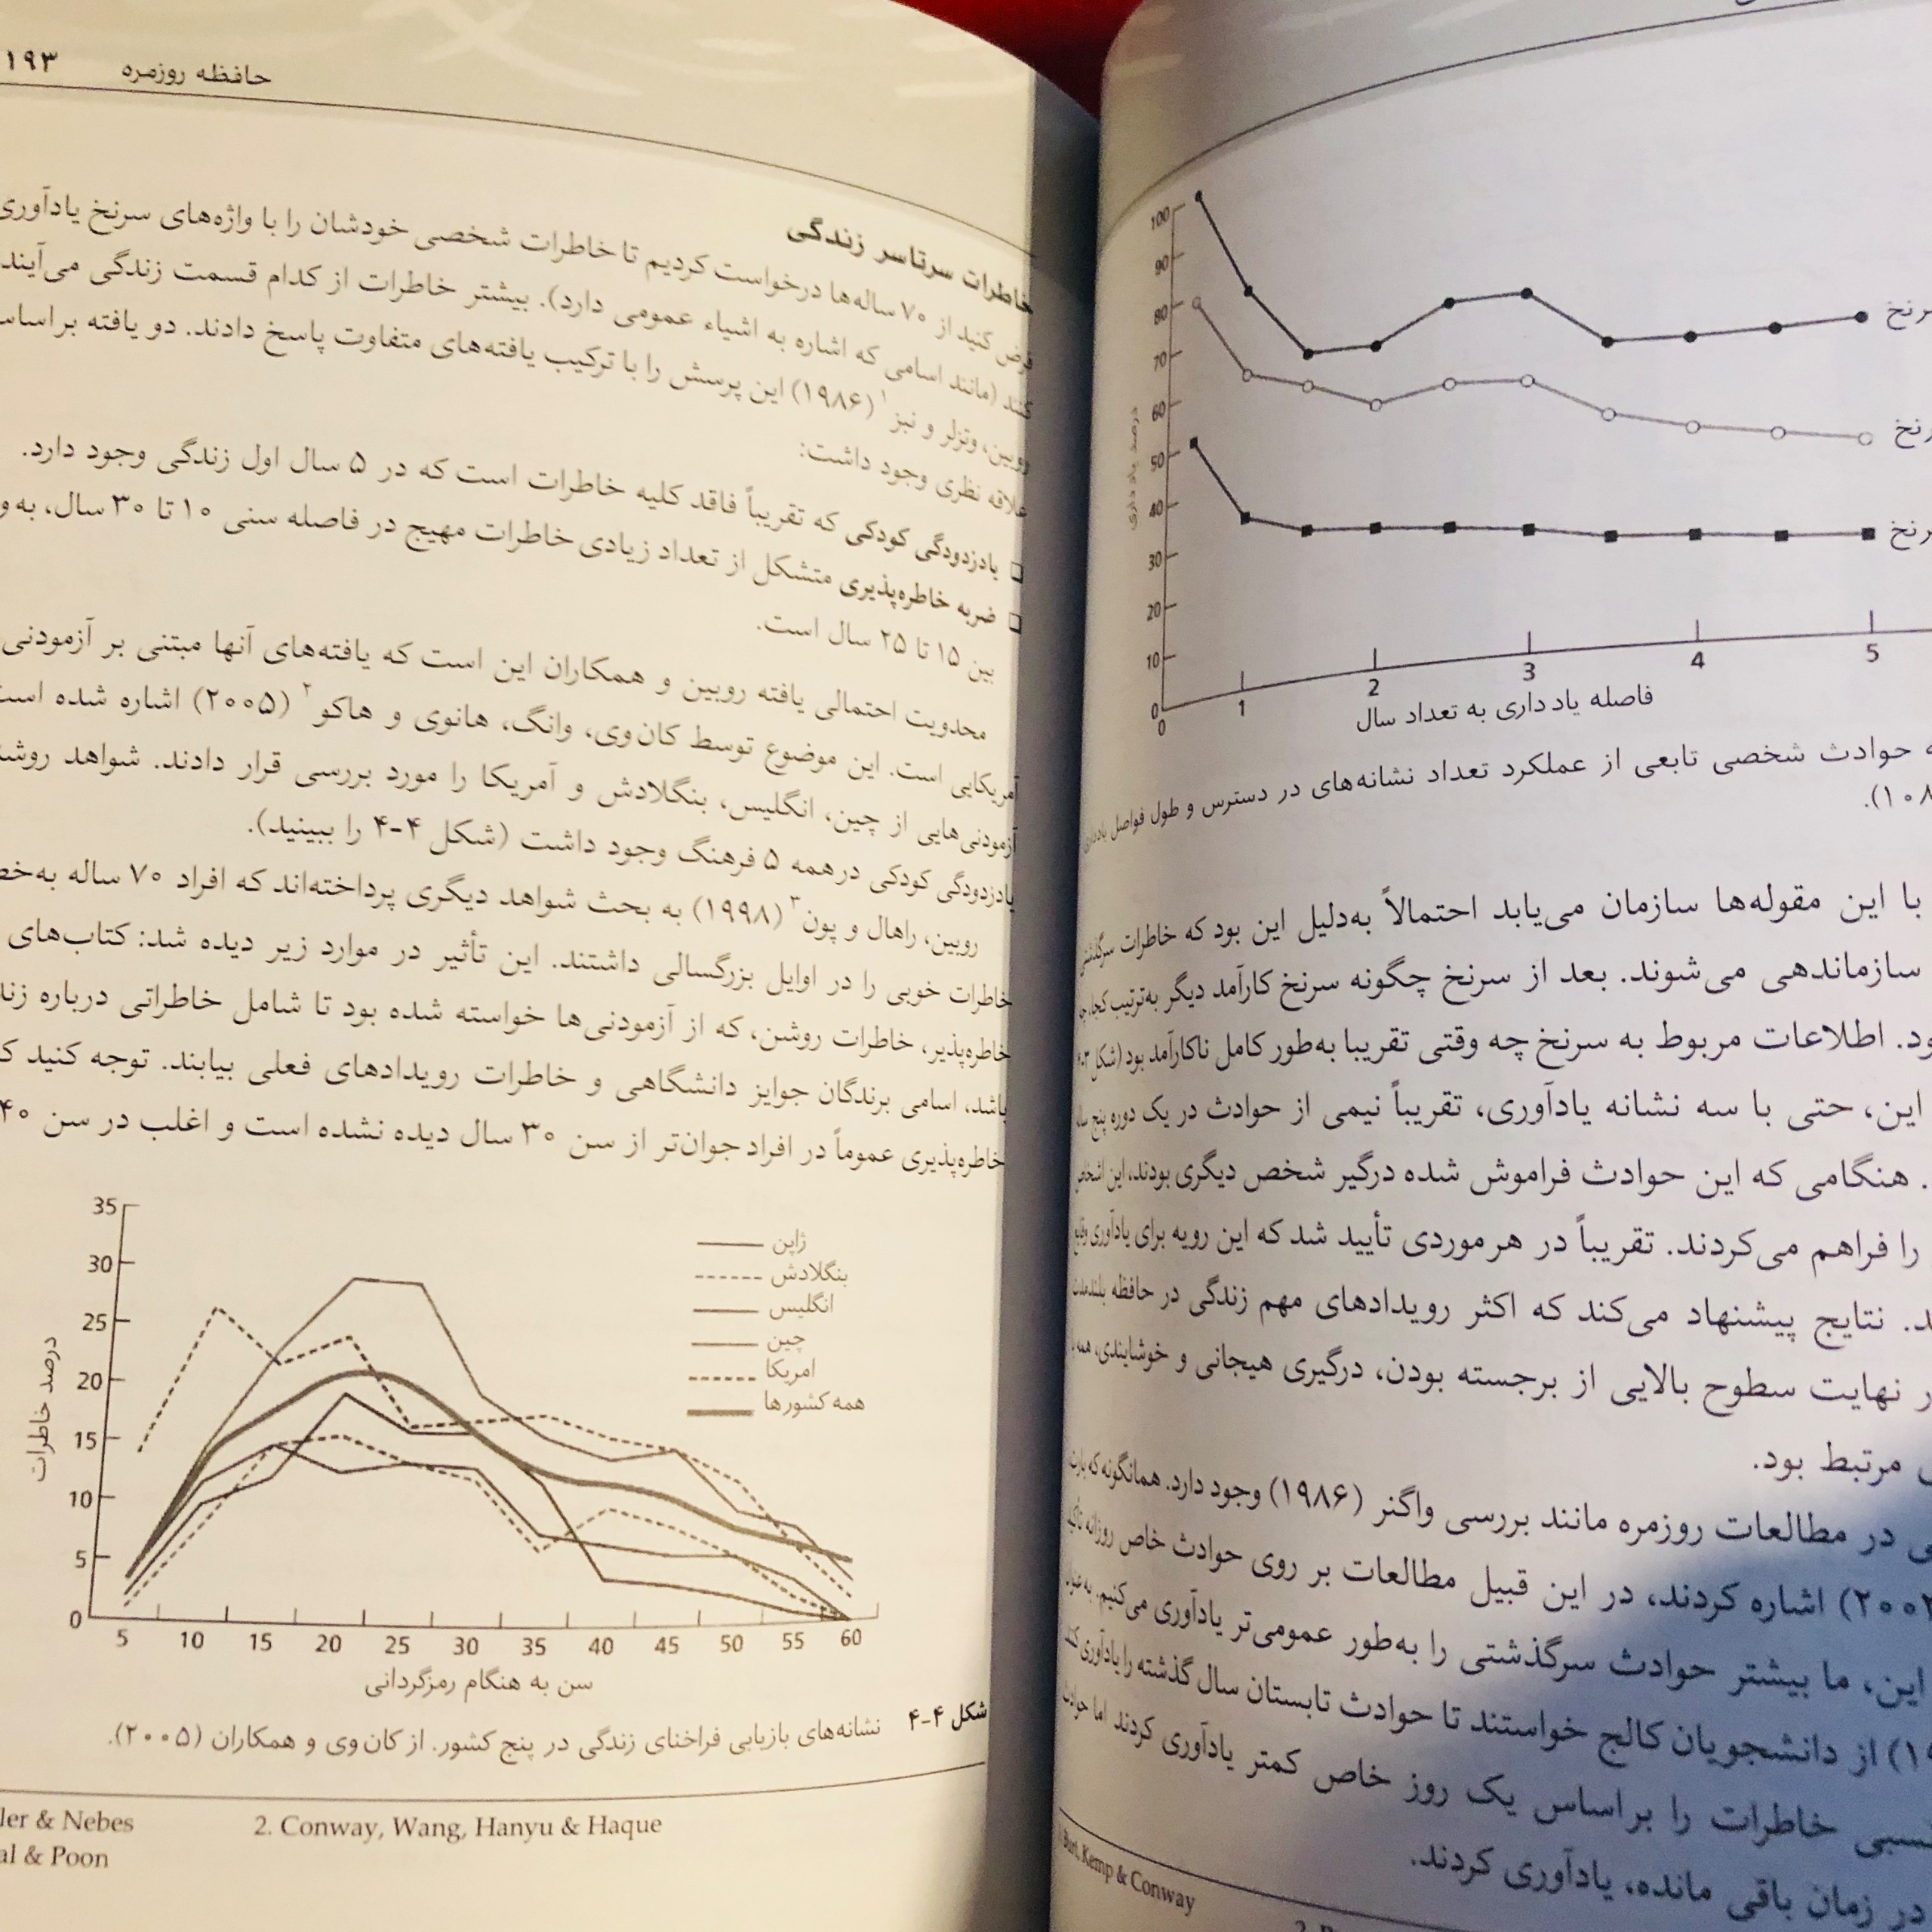 100
90
80
70
60
50
40
30
20
10
0
0 1 2 3 4 5
درصد یاد داری
فاصله یاد داری به تعداد سال
حوادث شخصی تابعی از عملکرد تعداد نشانه‌های در دسترس و طول فواصل
با این مقوله‌ها سازمان می‌یابد احتمالاً به‌دلیل این بود که خاطرات
سازماندهی می‌شوند. بعد از سرنخ چگونه سرنخ کارآمد دیگر به‌ترتیب
اطلاعات مربوط به سرنخ چه وقتی تقریبا به‌طور کامل ناکارآمد بود (شکل
این، حتی با سه نشانه یادآوری، تقریباً نیمی از حوادث در یک دوره پنج
هنگامی که این حوادث فراموش شده درگیر شخص دیگری بودند، این اشخاص
را فراهم می‌کردند. تقریباً در هر موردی تأیید شد که این رویه برای یادآوری وقایع
نتایج پیشنهاد می‌کند که اکثر رویدادهای مهم زندگی در حافظه بلندمدت
نهایت سطوح بالایی از برجسته بودن، درگیری هیجانی و خوشایندی، همه
مرتبط بود.
در مطالعات روزمره مانند بررسی واگنر (۱۹۸۶) وجود دارد. همانگونه که
اشاره کردند، در این قبیل مطالعات بر روی حوادث خاص روزانه تأکید
این، ما بیشتر حوادث سرگذشتی را به‌طور عمومی‌تر یادآوری می‌کنیم. به عنوان
از دانشجویان کالج خواستند تا حوادث تابستان سال گذشته را یادآوری
خاطرات را براساس یک روز خاص کمتر یادآوری کردند اما
در زمان باقی مانده، یادآوری کردند.
Burt, Kemp & Conway
حافظه روزمره ۱۹۳
خاطرات سرتاسر زندگی
فرض کنید از ۷۰ ساله‌ها درخواست کردیم تا خاطرات شخصی خودشان را با واژه‌های سرنخ یادآوری
کنند (مانند اسامی که اشاره به اشیاء عمومی دارد). بیشتر خاطرات از کدام قسمت زندگی می‌آیند
روبین، وتزلر و نبز۱ (۱۹۸۶) این پرسش را با ترکیب یافته‌های متفاوت پاسخ دادند. دو یافته براساس
علاقه نظری وجود داشت:
❑ یادزدودگی کودکی که تقریباً فاقد کلیه خاطرات است که در ۵ سال اول زندگی وجود دارد.
❑ ضربه خاطره‌پذیری متشکل از تعداد زیادی خاطرات مهیج در فاصله سنی ۱۰ تا ۳۰ سال،
بین ۱۵ تا ۲۵ سال است.
محدویت احتمالی یافته روبین و همکاران این است که یافته‌های آنها مبتنی بر آزمودنی
آمریکایی است. این موضوع توسط کان‌وی، وانگ، هانوی و هاکو۲ (۲۰۰۵) اشاره شده است
آزمودنی‌هایی از چین، انگلیس، بنگلادش و آمریکا را مورد بررسی قرار دادند. شواهد
یادزدودگی کودکی درهمه ۵ فرهنگ وجود داشت (شکل ۴-۴ را ببینید).
روبین، راهال و پون۳ (۱۹۹۸) به بحث شواهد دیگری پرداخته‌اند که افراد ۷۰ ساله
خاطرات خوبی را در اوایل بزرگسالی داشتند. این تأثیر در موارد زیر دیده شد: کتاب‌های
خاطره‌پذیر، خاطرات روشن، که از آزمودنی‌ها خواسته شده بود تا شامل خاطراتی درباره
باشد، اسامی برندگان جوایز دانشگاهی و خاطرات رویدادهای فعلی بیابند. توجه کنید
خاطره‌پذیری عموماً در افراد جوان‌تر از سن ۳۰ سال دیده نشده است و اغلب در سن ۴۰
35
30
25
20
15
10
5
0
5 10 15 20 25 30 35 40 45 50 55 60
درصد خاطرات
ژاپن
بنگلادش
انگلیس
چین
امریکا
همه کشورها
سن به هنگام رمزگردانی
شکل ۴-۴ نشانه‌های بازیابی فراخنای زندگی در پنج کشور. از کان وی و همکاران (۲۰۰۵).
& Nebes 2. Conway, Wang, Hanyu & Haque
& Poon